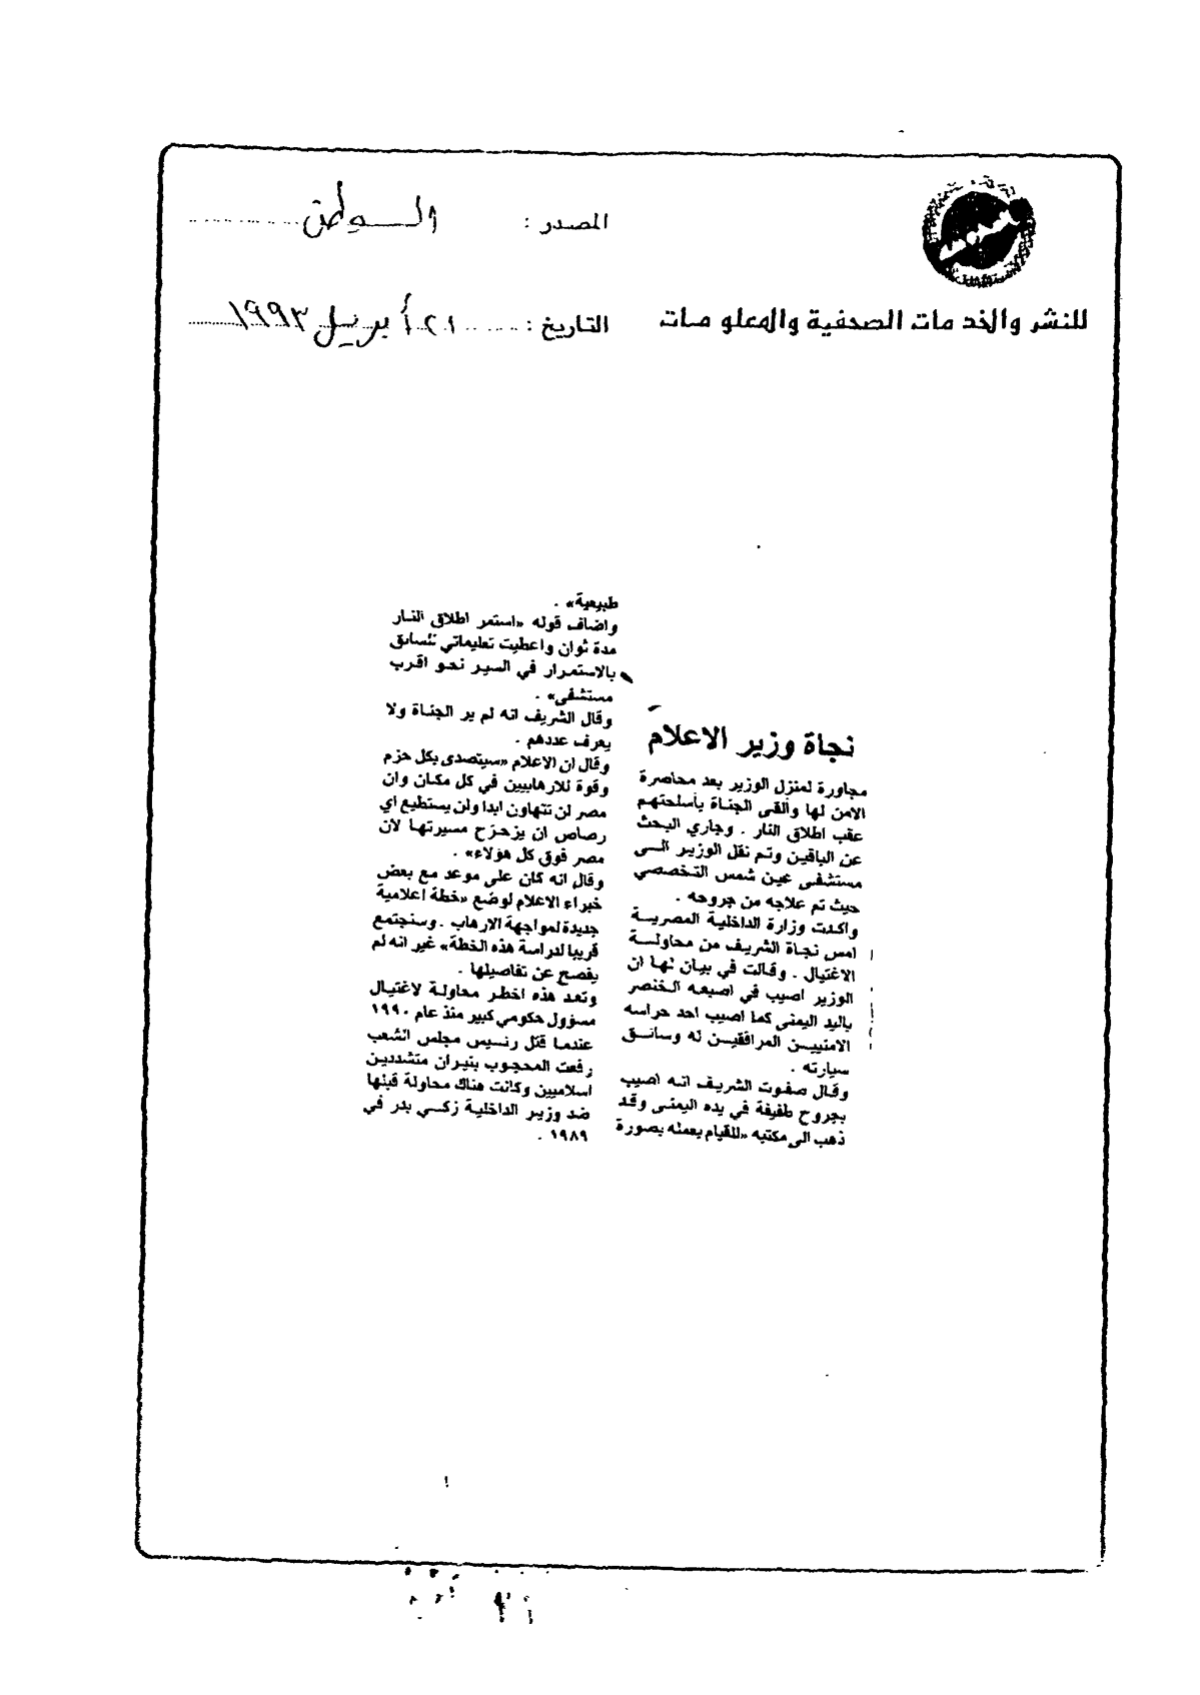 المصدر : الوطن
للنشر والخدمات الصحفية والمعلومات
التاريخ : ٢١ أبريل ١٩٩٣
نجاة وزير الاعلام
مجاورة لمنزل الوزير بعد محاصرة
الامن لها والقى الجناة بأسلحتهم
عقب اطلاق النار . وجاري البحث
عن الباقين وتم نقل الوزير الى
مستشفى عين شمس التخصصي
حيث تم علاجه من جروحه .
واكدت وزارة الداخلية المصرية
امس نجاة الشريف من محاولة
الاغتيال . وقالت في بيان لها ان
الوزير اصيب في اصبعه الخنصر
باليد اليمنى كما اصيب احد حراسه
الامنيين المرافقين له وسائق
سيارته .
وقال صفوت الشريف انه اصيب
بجروح طفيفة في يده اليمنى وقد
ذهب الى مكتبه «للقيام بعمله بصورة
طبيعية» .
واضاف قوله «استمر اطلاق النار
مدة ثوان واعطيت تعليماتي للسائق
بالاستمرار في السير نحو اقرب
مستشفى» .
وقال الشريف انه لم ير الجناة ولا
يعرف عددهم .
وقال ان الاعلام «سيتصدى بكل حزم
وقوة للارهابيين في كل مكان وان
مصر لن تتهاون ابدا ولن يستطيع اي
رصاص ان يزحزح مسيرتها لان
مصر فوق كل هؤلاء» .
وقال انه كان على موعد مع بعض
خبراء الاعلام لوضع «خطة اعلامية
جديدة لمواجهة الارهاب . وسنجتمع
قريبا لدراسة هذه الخطة» غير انه لم
يفصح عن تفاصيلها .
وتعد هذه اخطر محاولة لاغتيال
مسؤول حكومي كبير منذ عام ١٩٩٠
عندما قتل رئيس مجلس الشعب
رفعت المحجوب بنيران متشددين
اسلاميين وكانت هناك محاولة قبلها
ضد وزير الداخلية زكي بدر في
١٩٨٩ .